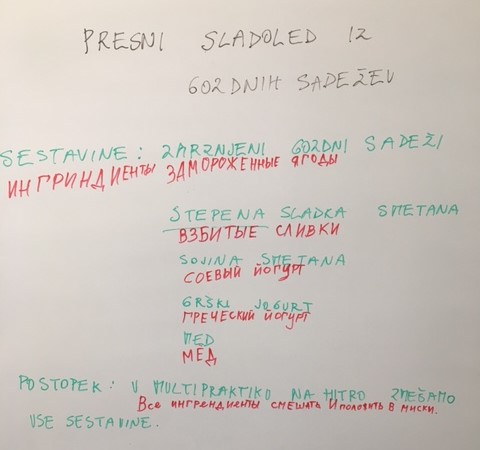 PRESNI SLADOLED IZ
GOZDNIH SADEŽEV
SESTAVINE: ZARZNJENI GOZDNI SADEŽI
ИНГРИНДИЕНТЫ ЗАМОРОЖЕННЫЕ ЯГОДЫ
STEPENA SLADKA SMETANA
ВЗБИТЫЕ СЛИВКИ
SOJINA SMETANA
СОЕВЫЙ ЙОГУРТ
GRŠKI JOGURT
ГРЕЧЕСКИЙ ЙОГУРТ
MED
МЁД
POSTOPEK: V MULTIPRAKTIKO NA HITRO ZMEŠAMO
Все ингрендиенты смешать И положить в миски.
VSE SESTAVINE.